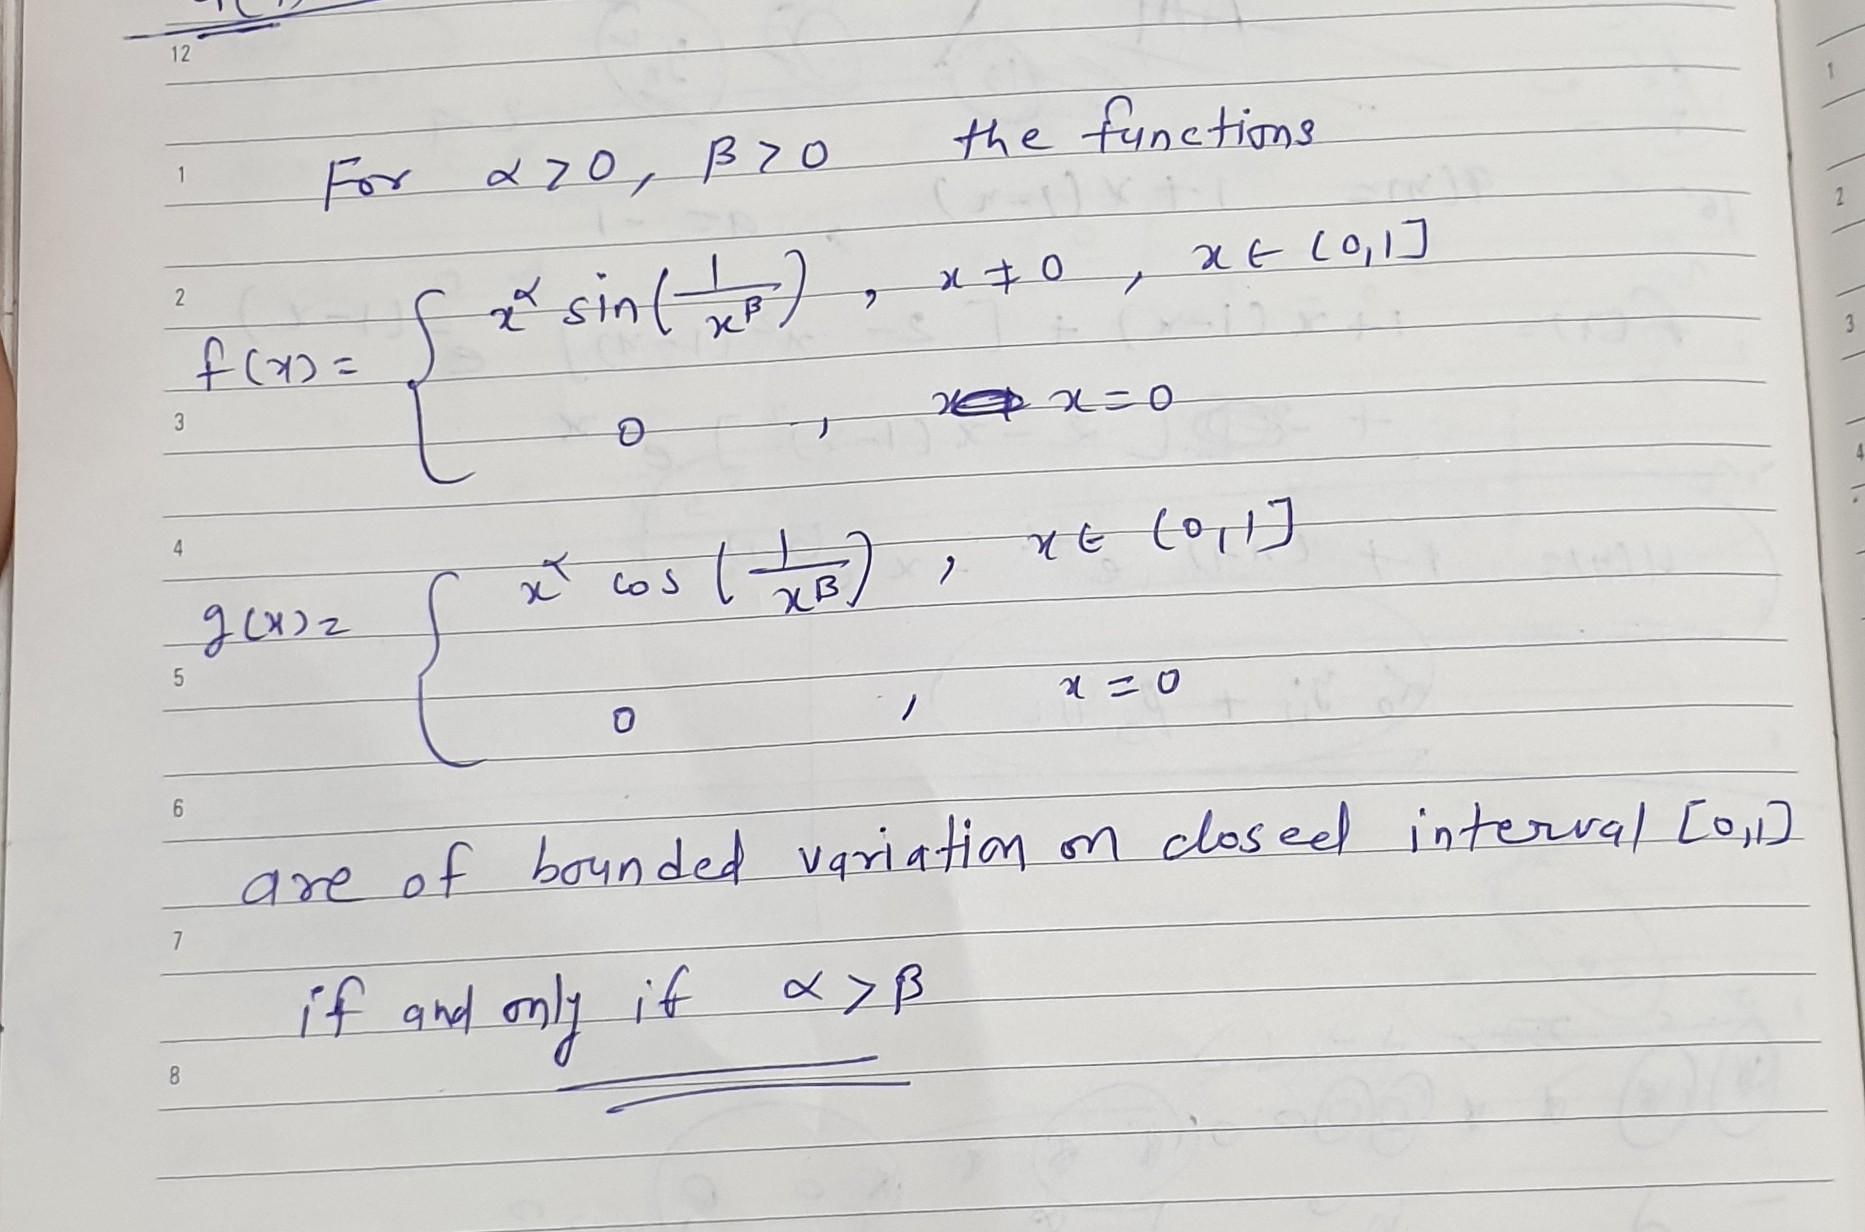 12
1 For α>0, β>0 the functions
2 f(x) = { x^α sin(1/x^β), x≠0, x∈(0,1]
3 0, x=0
4 g(x) = { x^α cos(1/x^β), x∈(0,1]
5 0, x=0
6 are of bounded variation on closed interval [0,1]
7 if and only if α>β
8
1
2
3
4